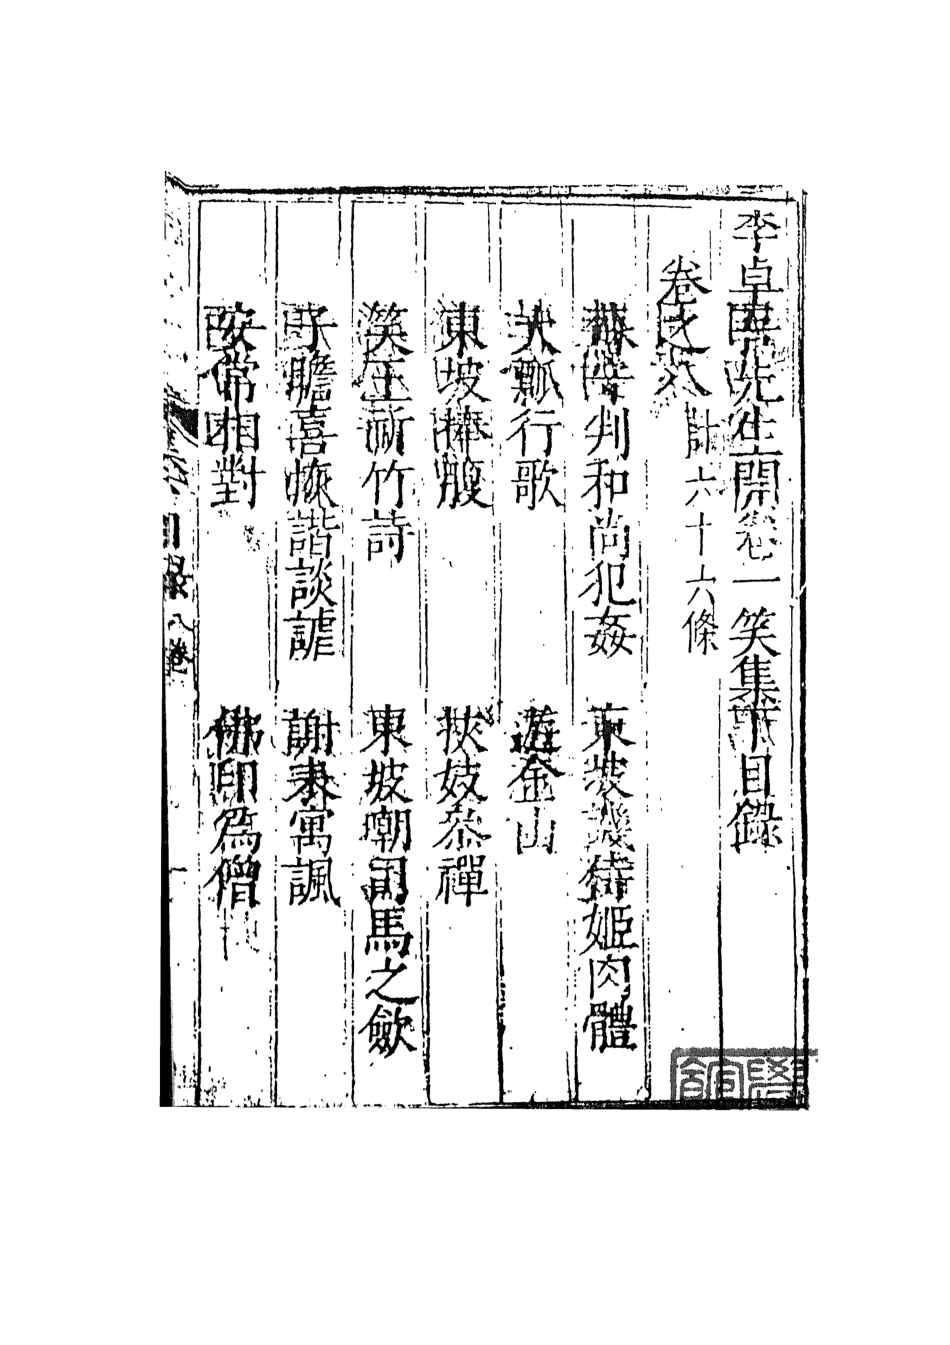 李卓吾先生開卷一笑集下目錄
卷之八 計六十六條
蘇 判和尚犯姦 東坡譏 姬肉體
瓢行歌 遊金山
東坡捧腹 挾妓參禪
笑王祈竹詩 東坡嘲司馬之歛
子瞻喜恢諧談謔 謝表寓諷
安常相對 佛印爲僧
目錄 八卷 一